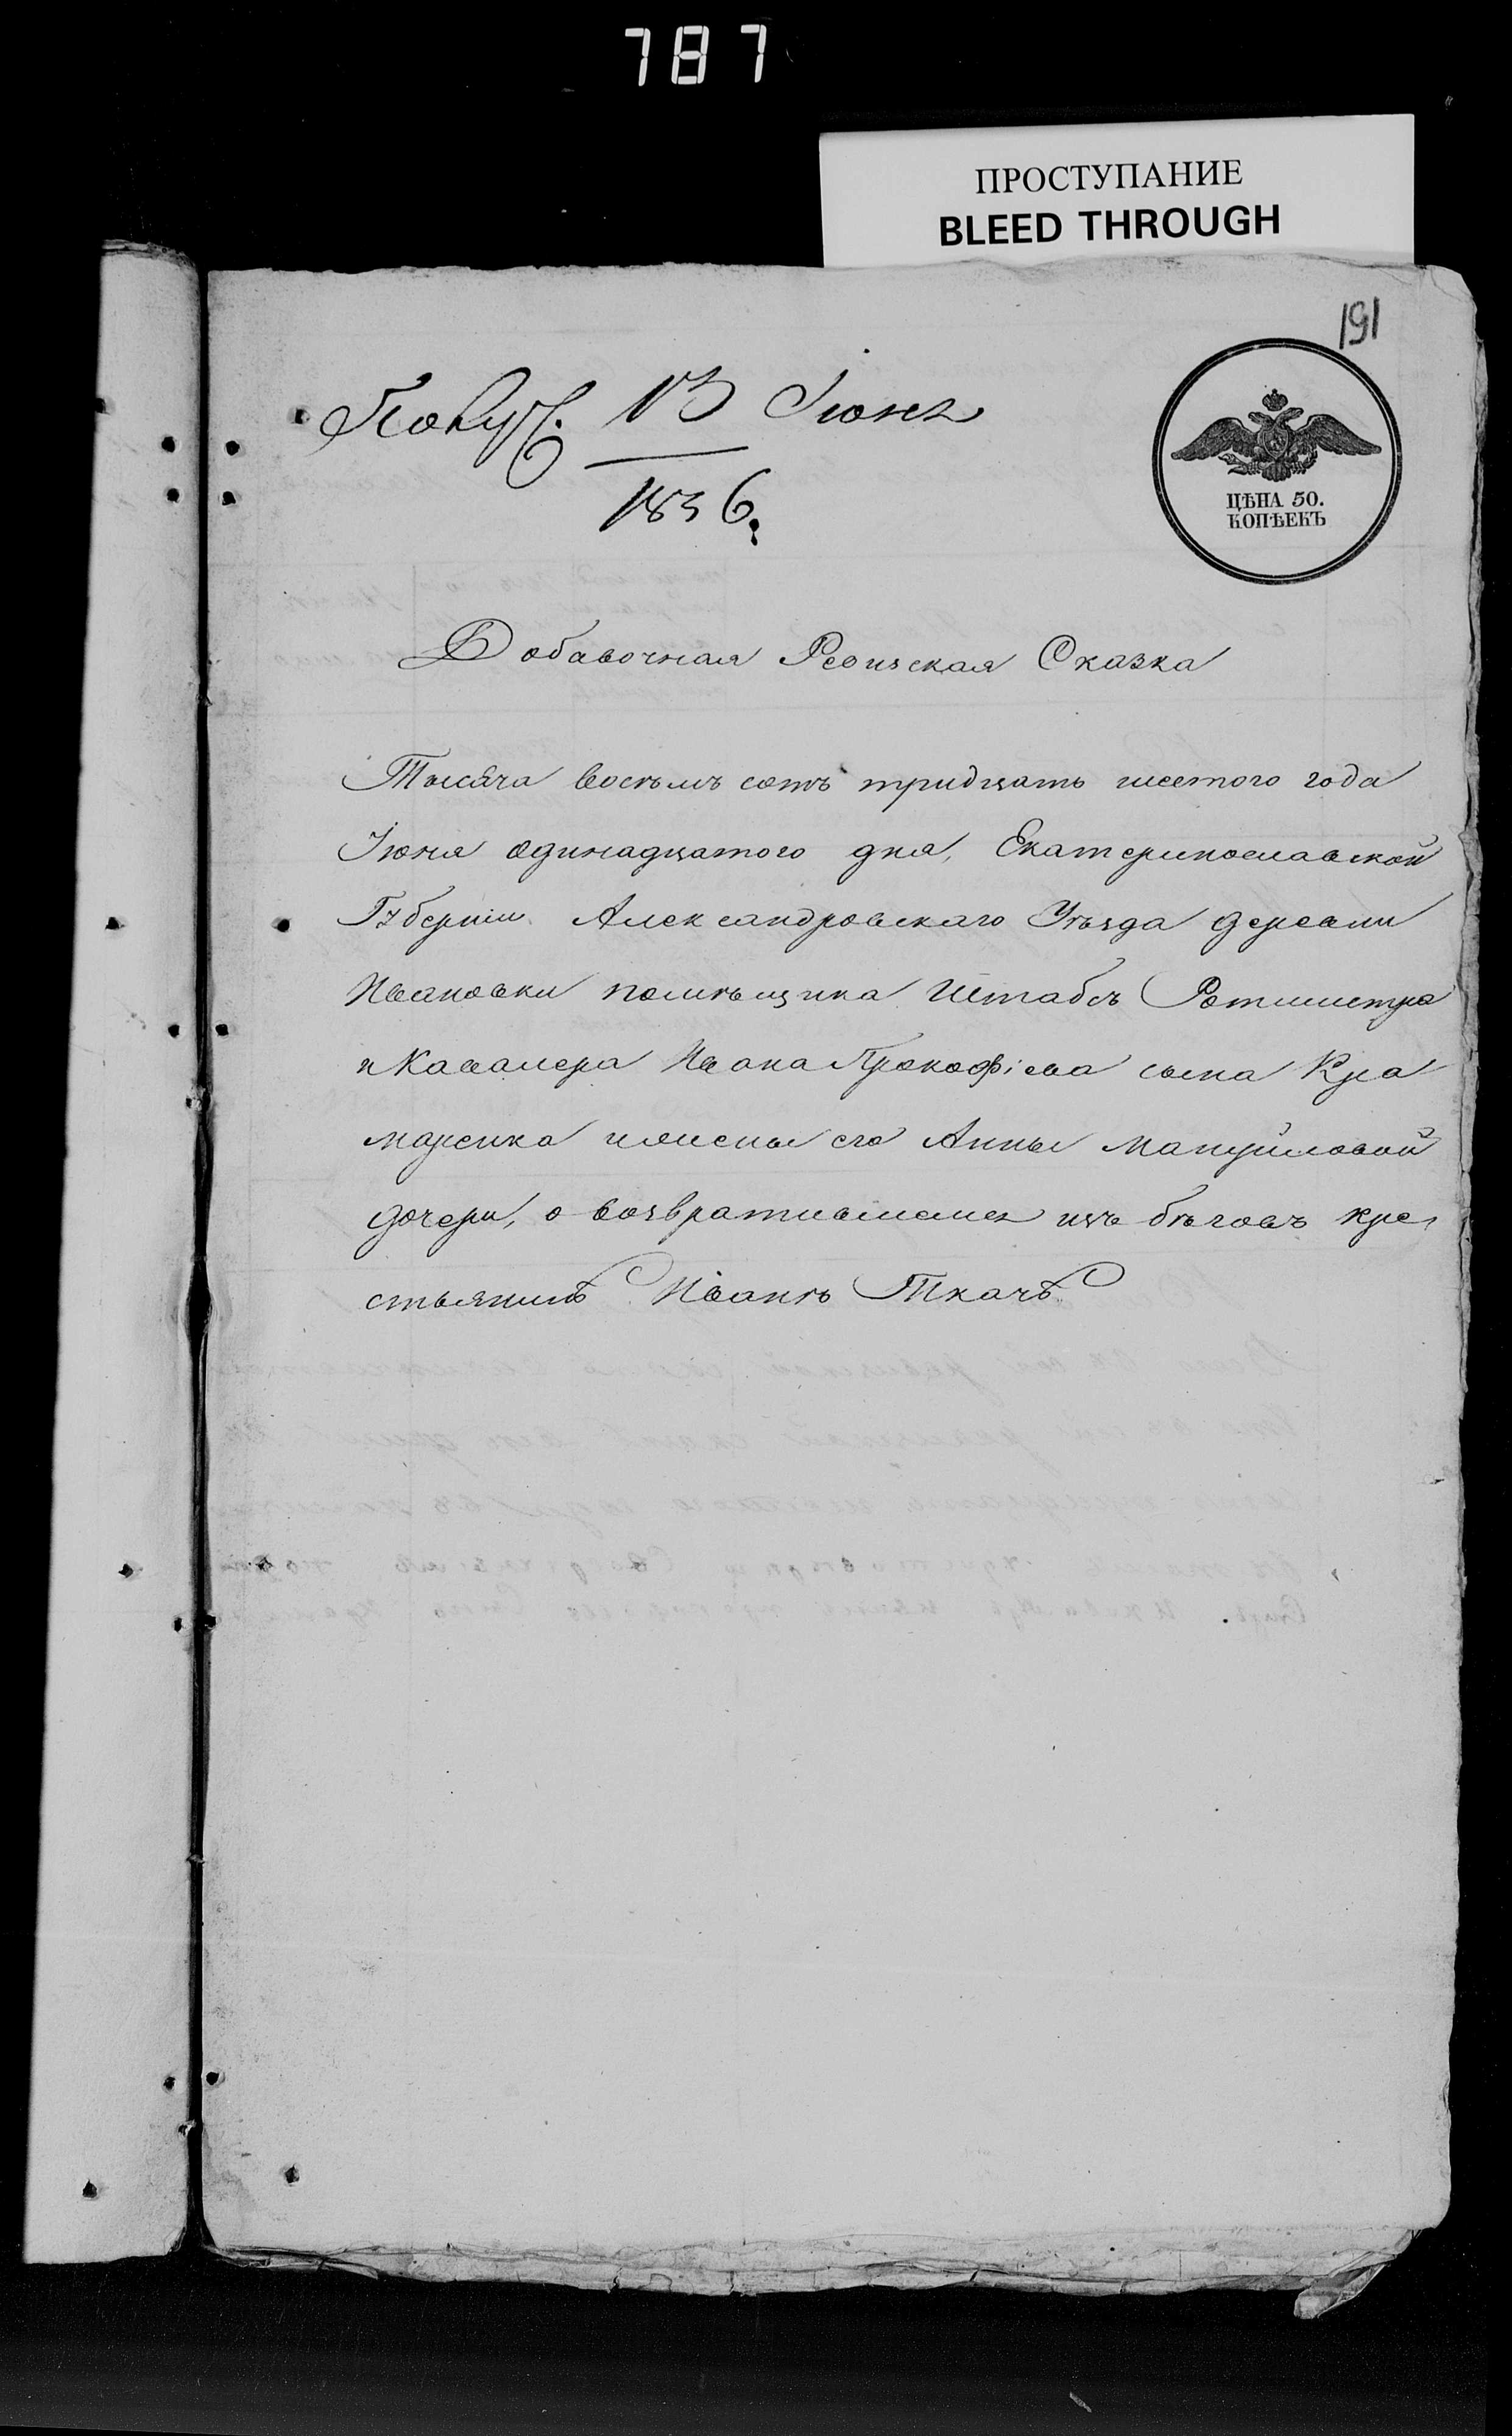 787
ПРОСТУПАНИЕ
BLEED THROUGH
191
13 Іюня
1836.
ЦѢНА 50.
КОПѢЕКЪ
Добавочная Ревизская Сказка
Тысяча восемь сотъ тридцать шестого года
Іюня одинадцатого дня, Екатеринославской
Губерніи Александровскаго Уѣзда деревни
Ивановки помѣщика Штабсъ Ротмистра
и Кавалера Ивана Прокофіева сына Кра
маренка и жены его Анны Мануйловой
дочери, о возвратившемся изъ бѣговъ кре
стьянинѣ Иванѣ Ткачѣ